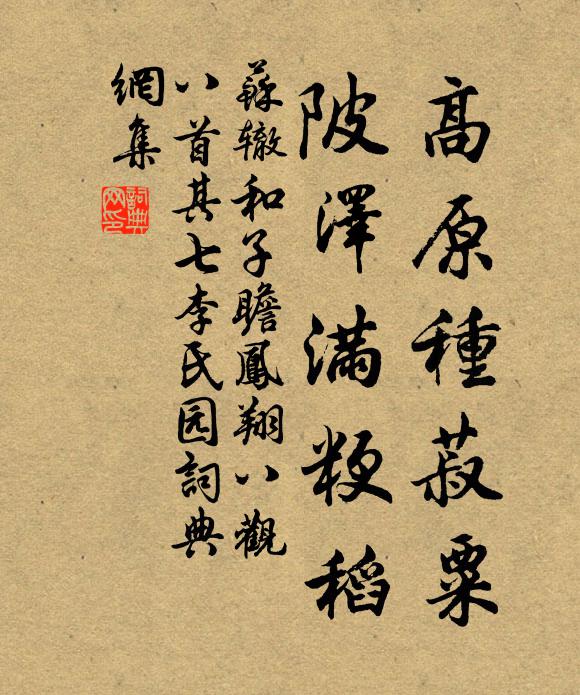 高原種菽粟
陂澤满粳稻
蘇辙和子瞻鳳翔八觀
八首其七李氏园詞典
網集
詞典
网印